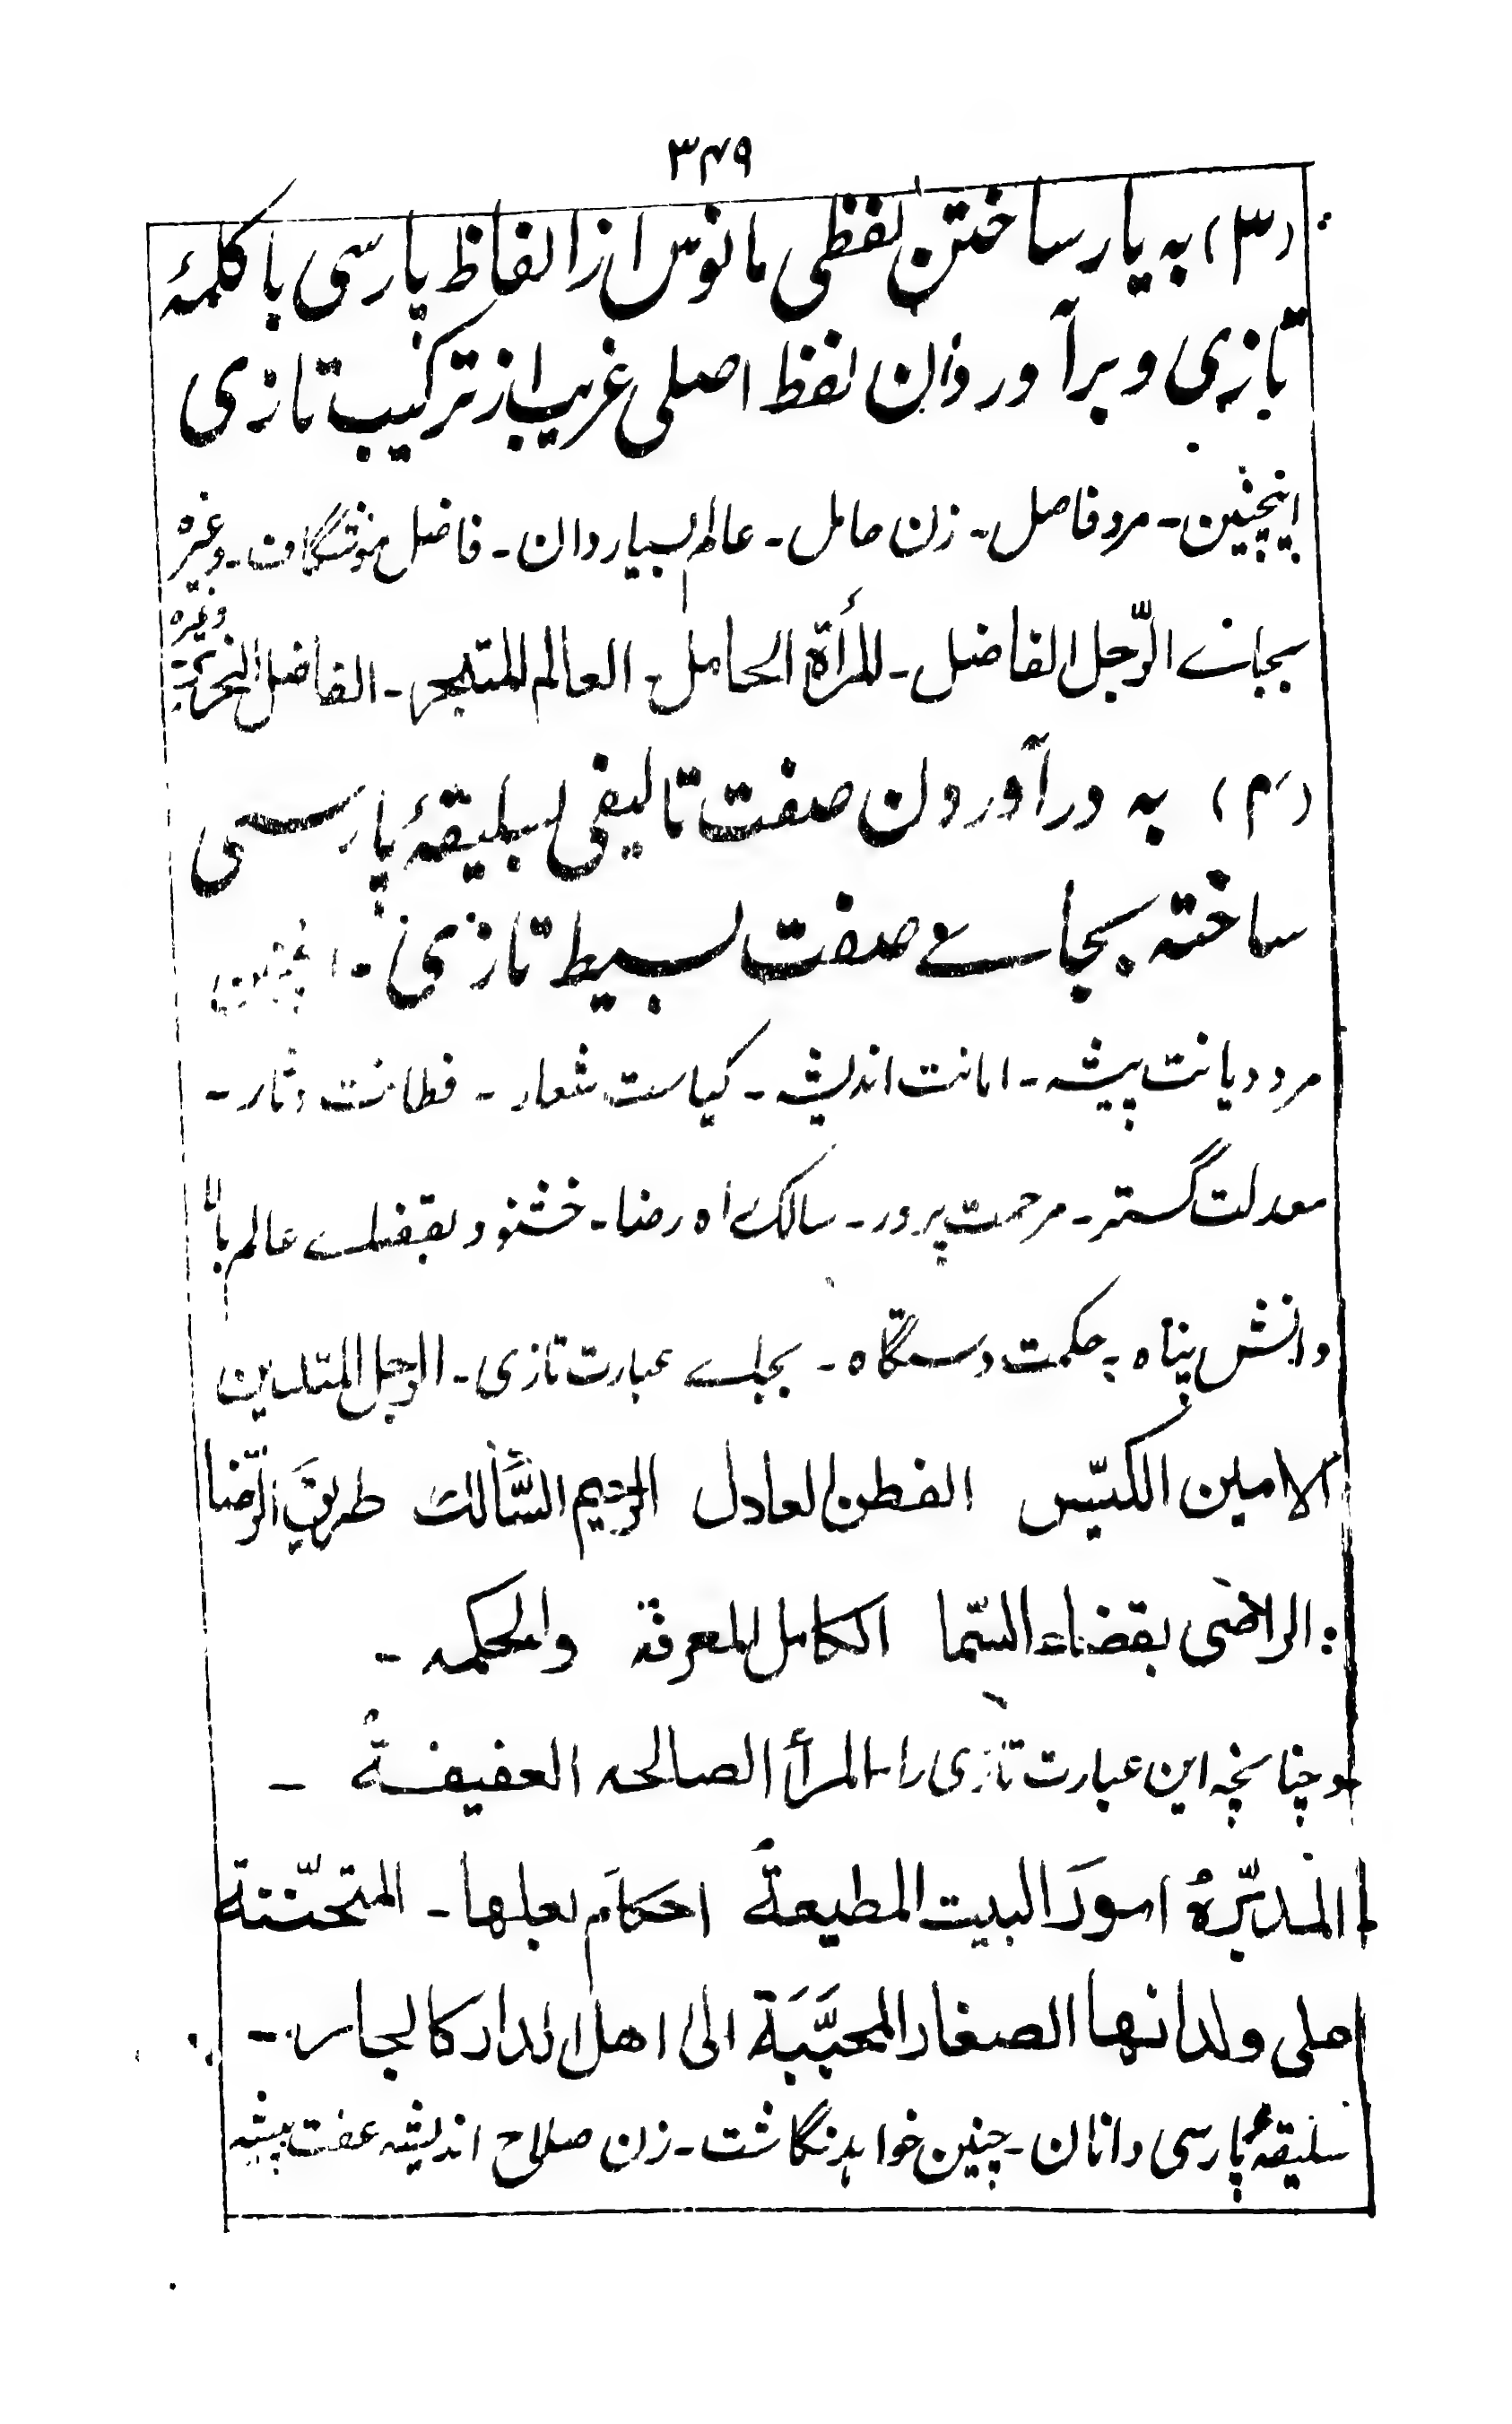 ۳۴۹
(۳) به یار ساختن لفظی مانوس از الفاظ پارسی با کلمۀ
تازی و برآوردن لفظ اصلی غریب از ترکیب تازی
اینچنین - مرد فاضل - زن حامل - عالم بسیار دان - فاضل موشگاف - وغیره
بجاے الرّجل الفاضل - المرأة الحامل - العالم المتبحر - الفاضل النحریر وغیره
(۴) به درآوردن صفت تالیفی بسلیقۀ پارسی
ساخته بجاے صفت بسیط تازی - اینچنین
مرد دیانت پیشه - امانت اندیشه - کیاست شعار - فطانت دثار -
معدلت گستر - مرحمت پرور - سالک راه رضا - خشنود بقضاے عالم بالا
دانش پناه - حکمت دستگاه - بجاے عبارت تازی - الرجل المتدین
الامین الکیّس الفطن العادل الرحیم السَّالک طریقَ الرّضا
الراضی بقضاء السّما الکامل المعرفة والحکمه -
و چنانچه این عبارت تازی را - المرأ الصالحه العفیفةُ -
المدبّرهُ امورَ البیت المطیعةُ احکامَ بعلها - المتحنّنة
علی ولدانها الصغار المحبَّبَة الی اهل الدار کالجار -
سلیقۀ پارسی دانان - چنین خواهد نگاشت - زن صلاح اندیشه عفت پیشه